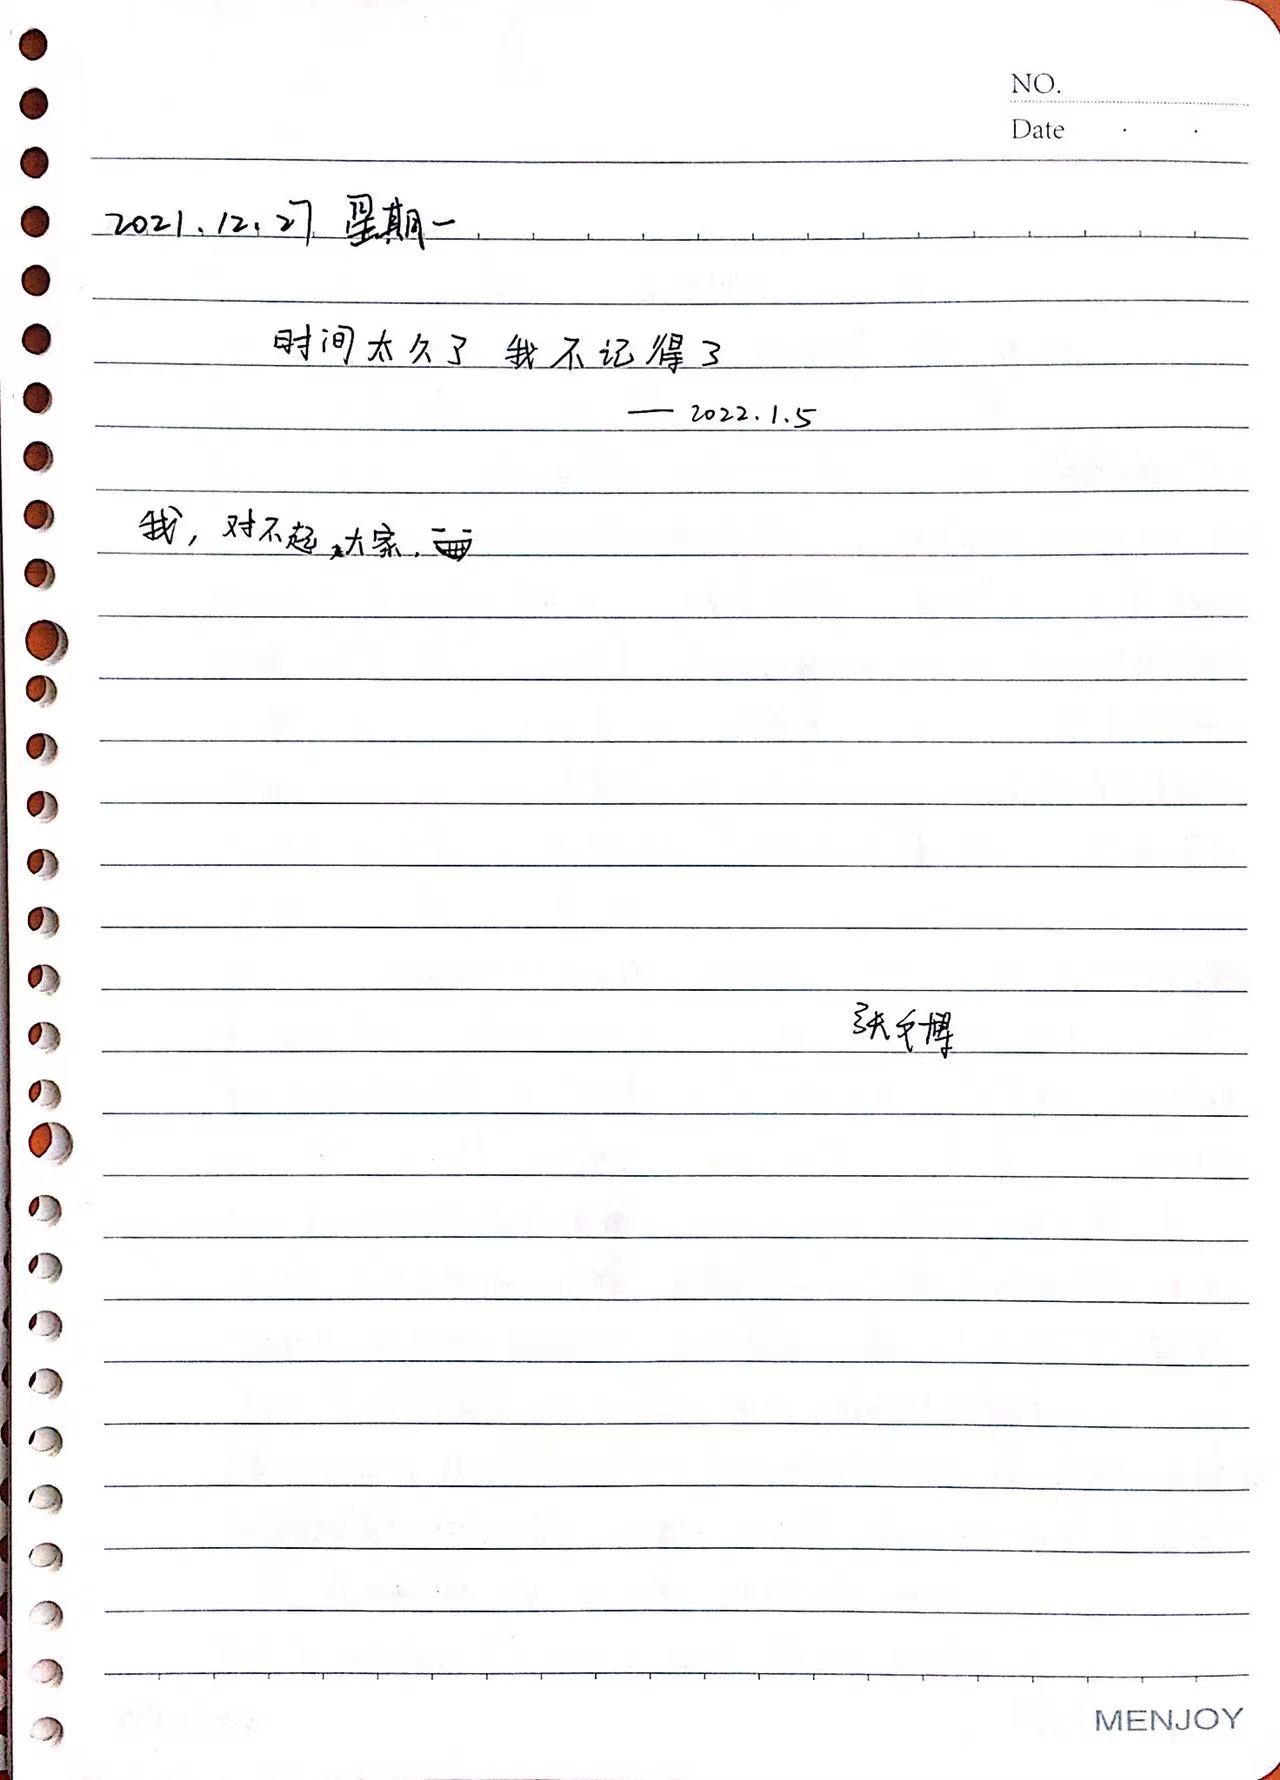 NO.
Date . .
2021.12.27 星期一
时间太久了 我不记得了
—— 2022.1.5
我,对不起大家.
MENJOY